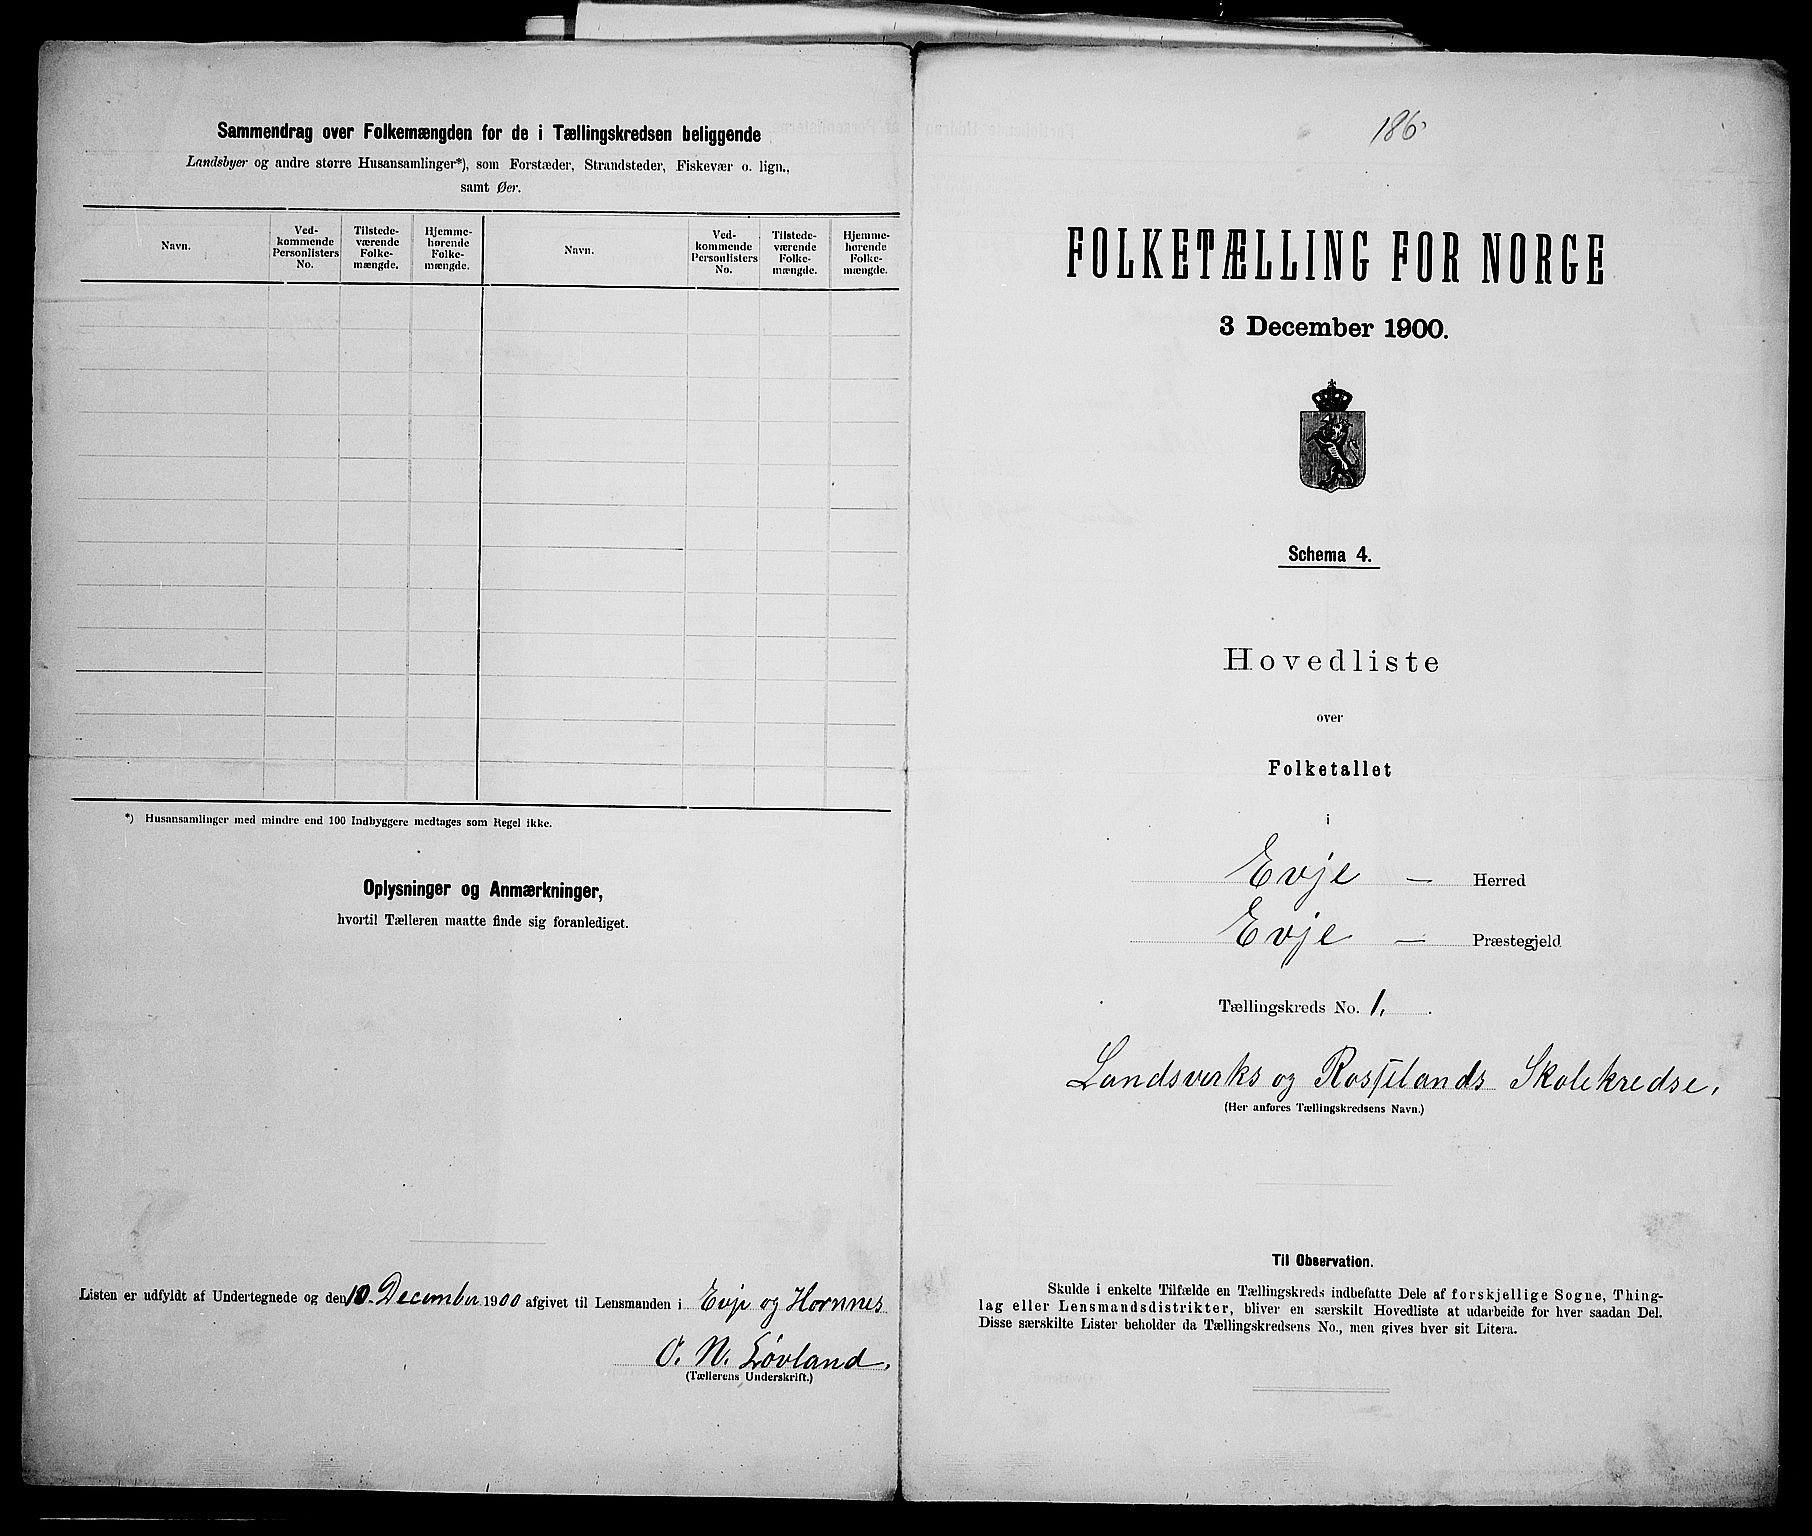 Sammendrag over Folkemængden for de i Tællingskredsen beliggende
Landsbyer og andre større Husansamlinger*), som Forstæder, Strandsteder, Fiskevær o. lign.,
samt Øer.
Navn.
Ved-
kommende
Personlisters
No.
Tilstede-
værende
Folke-
mængde.
Hjemme-
hørende
Folke-
mængde.
Navn.
Ved-
kommende
Personlisters
No.
Tilstede-
værende
Folke-
mængde.
Hjemme-
hørende
Folke-
mængde.
*) Husansamlinger med mindre end 100 Indbyggere medtages som Regel ikke.
Oplysninger og Anmærkninger,
hvortil Tælleren maatte finde sig foranlediget.
Listen er udfyldt af Undertegnede og den 10. December 1900 afgivet til Lensmanden i Evje og Hornnes
O. N. Løvland,
(Tællerens Underskrift.)
186
FOLKETÆLLING FOR NORGE
3 December 1900.
Schema 4.
Hovedliste
over
Folketallet
i
Evje — Herred
Evje — Præstegjeld
Tællingskreds No. 1.
Landsverks og Rosselands Skolekredse,
(Her anføres Tællingskredsens Navn.)
Til Observation.
Skulde i enkelte Tilfælde en Tællingskreds indbefatte Dele af forskjellige Sogne, Thing-
lag eller Lensmandsdistrikter, bliver en særskilt Hovedliste at udarbeide for hver saadan Del.
Disse særskilte Lister beholder da Tællingskredsens No., men gives hver sit Litera.